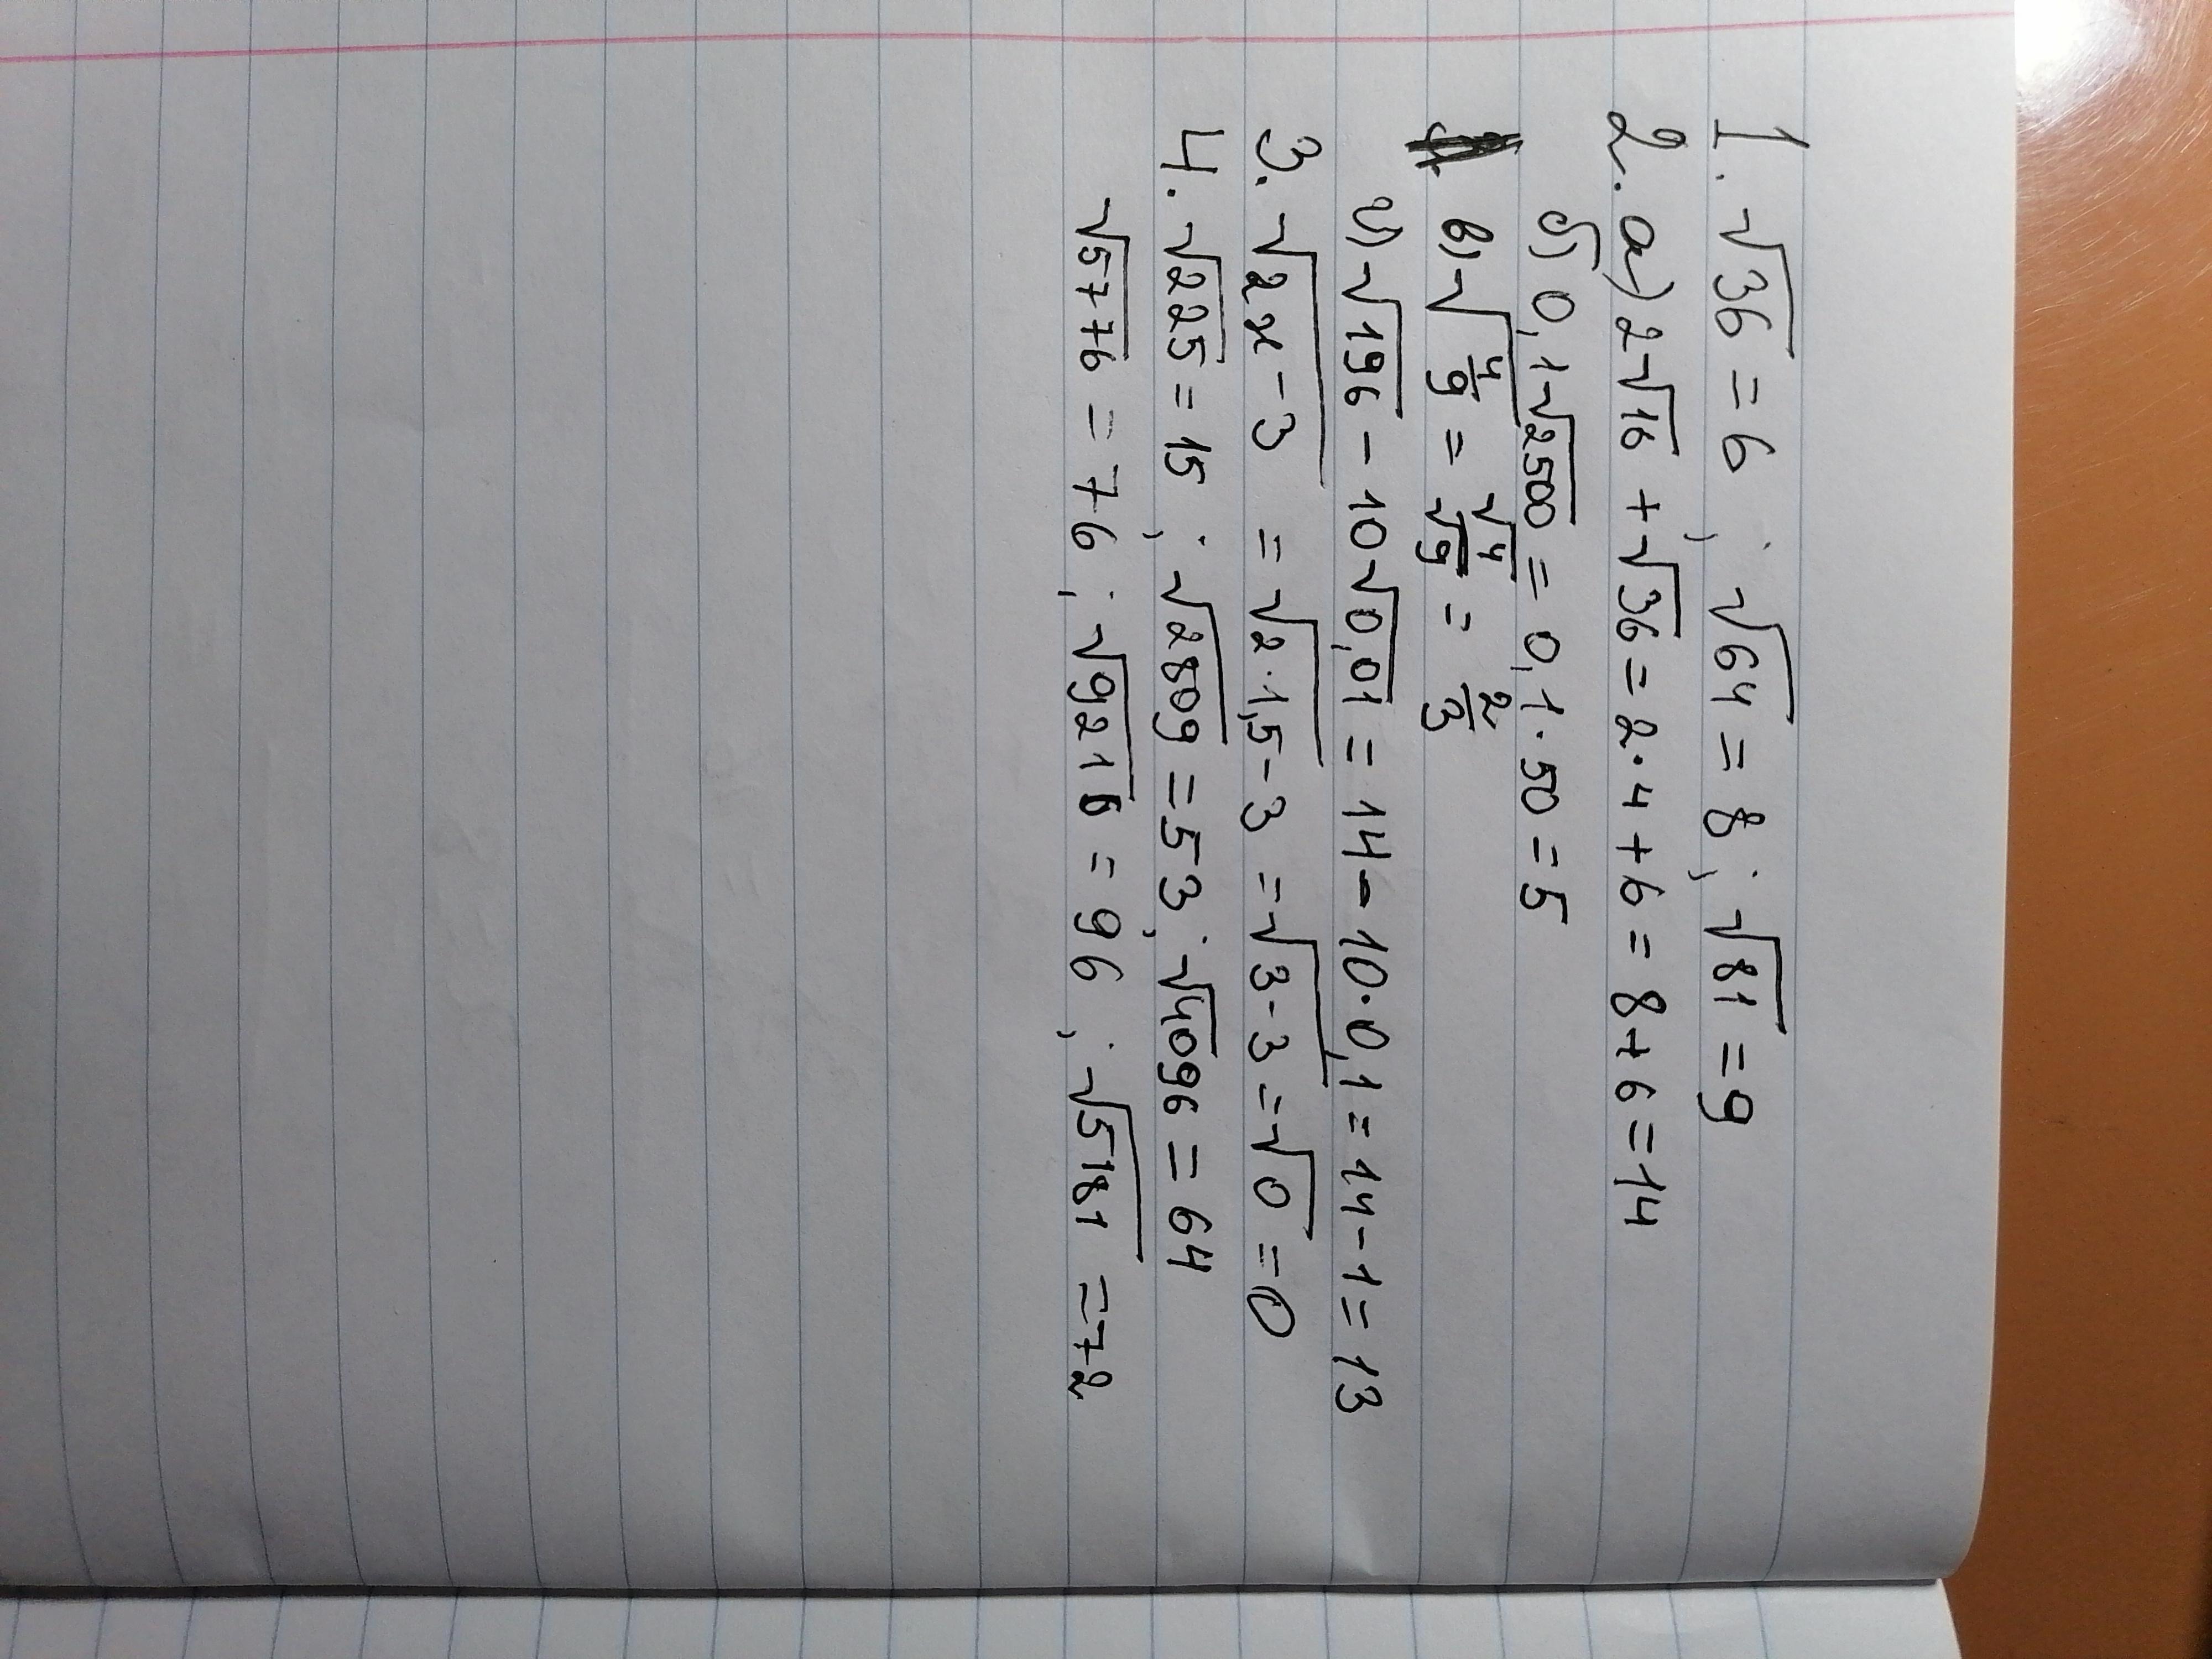 1. √36 = 6 ; √64 = 8 ; √81 = 9
2. а) 2√16 + √36 = 2·4 + 6 = 8 + 6 = 14
б) 0,1√2500 = 0,1·50 = 5
в) √4/9 = √4/√9 = 2/3
г) √196 - 10√0,01 = 14 - 10·0,1 = 14 - 1 = 13
3. √2x-3 = √2·1,5-3 = √3-3 = √0 = 0
4. √225 = 15 ; √2809 = 53 ; √4096 = 64
√5776 = 76 ; √9216 = 96 ; √5181 = 72